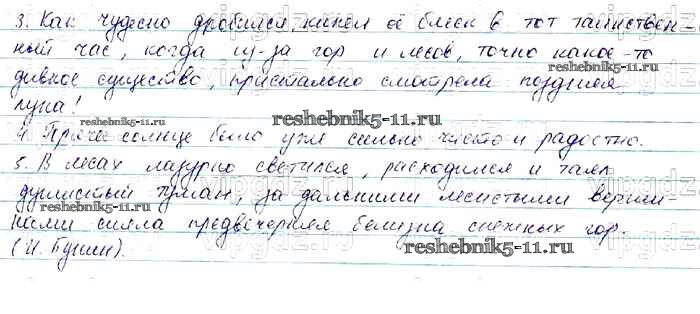 3. Как чудесно дробился, кипел её блеск в тот таинствен-
ный час, когда из-за гор и лесов, точно какое-то
дивное существо, пристально смотрела поздняя
луна!
reshebnik5-11.ru
reshebnik5-11.ru
4. Горячее солнце было уже сильно, чисто и радостно.
5. В лесах лазурно светился, расходился и таял
душистый туман, за дальними лесистыми верши-
reshebnik5-11.ru
нами сияла предвечерняя белизна снежных гор.
reshebnik5-11.ru
(И. Бунин).
vipgdz.ru